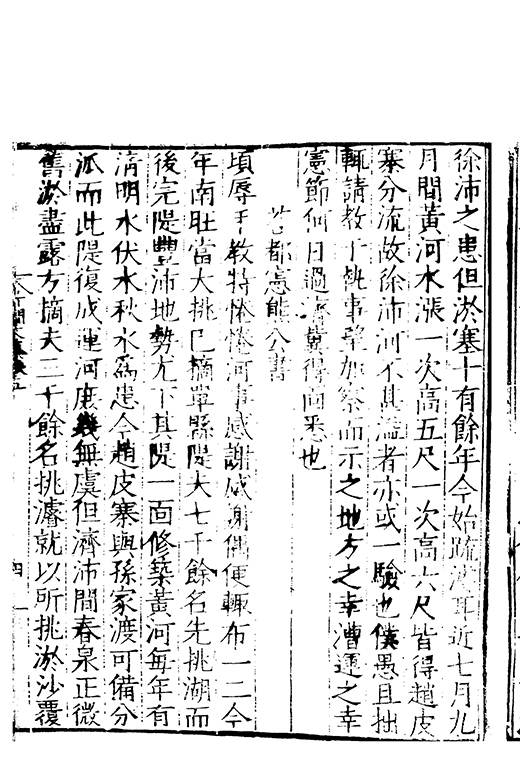 徐沛之患但淤塞十有餘年今始疏濬耳近七月九
月間黃河水漲一次高五尺一次高六尺皆得趙皮
寨分流故徐沛河不甚溢者亦或一驗也僕愚且拙
輒請教于執事望加察而示之地方之幸漕運之幸
憲節何日過濟冀得面悉也
答都憲熊公書
頃辱手教特惓惓河事感謝感謝偶便輒布一二今
年南旺當大挑已摘單縣隄夫七千餘名先挑湖而
後完隄豐沛地勢尤下其隄一面修築黃河每年有
清明水伏水秋水為患今趙皮寨與孫家渡可備分
派而此隄復成運河庶幾無虞但濟沛間春泉正微
舊淤盡露方摘夫三千餘名挑濬就以所挑淤沙覆
四